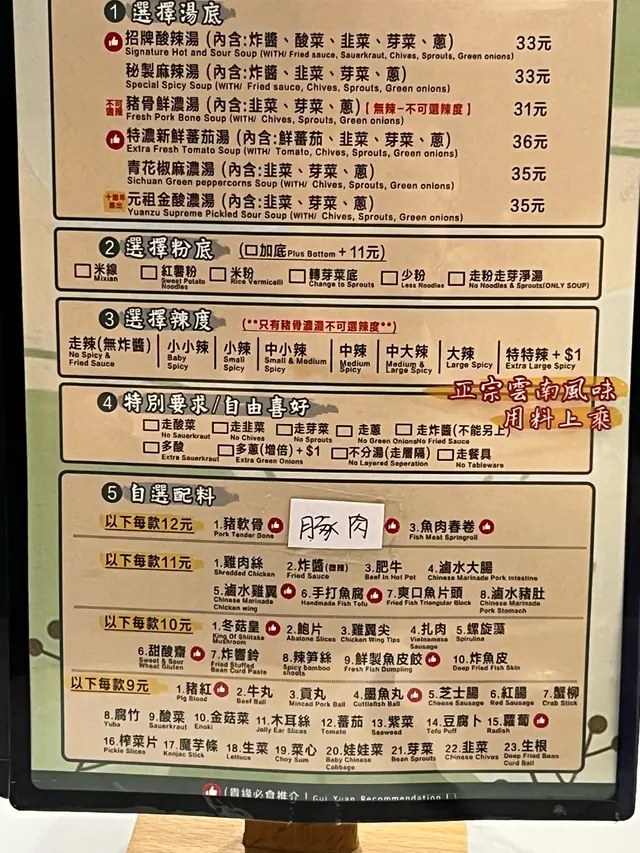 1 選擇湯底
招牌酸辣湯 (內含:炸醬、酸菜、韭菜、芽菜、蔥) 33元
Signature Hot and Sour Soup (WITH/ Fried sauce, Sauerkraut, Chives, Sprouts, Green onions)
秘製麻辣湯 (內含:炸醬、韭菜、芽菜、蔥) 33元
Special Spicy Soup (WITH/ Fried sauce, Chives, Sprouts, Green onions)
不可選辣 豬骨鮮濃湯 (內含:韭菜、芽菜、蔥)【無辣-不可選辣度】 31元
Fresh Pork Bone Soup (WITH/ Chives, Sprouts, Green onions)
特濃新鮮蕃茄湯 (內含:鮮蕃茄、韭菜、芽菜、蔥) 36元
Extra Fresh Tomato Soup (WITH/ Tomato, Chives, Sprouts, Green onions)
青花椒麻濃湯 (內含:韭菜、芽菜、蔥) 35元
Sichuan Green peppercorns Soup (WITH/ Chives, Sprouts, Green onions)
元祖金酸濃湯 (內含:韭菜、芽菜、蔥) 35元
Yuanzu Supreme Pickled Sour Soup (WITH/ Chives, Sprouts, Green onions)
2 選擇粉底 (加底Plus Bottom + 11元)
米線 紅薯粉 米粉 轉芽菜底 少粉 走粉走芽淨湯
Mixian Sweet Potato Noodles Rice Vermicelli Change to Sprouts Less Noodles No Noodles & Sprouts(ONLY SOUP)
3 選擇辣度 (**只有豬骨濃湯不可選辣度**)
走辣(無炸醬) 小小辣 小辣 中小辣 中辣 中大辣 大辣 特特辣 + $1
No Spicy & Fried Sauce Baby Spicy Small Spicy Small & Medium Spicy Medium Spicy Medium & Large Spicy Large Spicy Extra Large Spicy
正宗雲南風味
用料上乘
4 特別要求/自由喜好
走酸菜 走韭菜 走芽菜 走蔥 走炸醬(不能另上)
No Sauerkraut No Chives No Sprouts No Green Onions No Fried Sauce
多酸 多蔥(增倍) + $1 不分湯(走層隔) 走餐具
Extra Sauerkraut Extra Green Onions No Layered Seperation No Tableware
5 自選配料
以下每款12元 1.豬軟骨 豚肉 3.魚肉春卷
Pork Tender Bone Fish Meat Springroll
以下每款11元 1.雞肉絲 2.炸醬(微辣) 3.肥牛 4.滷水大腸
Shredded Chicken Fried Sauce Beef In Hot Pot Chinese Marinade Pork Intestine
5.滷水雞翼 6.手打魚腐 7.爽口魚片頭 8.滷水豬肚
Chinese Marinade Chicken wing Handmade Fish Tofu Fried Fish Triangular Block Chinese Marinade Pork Stomach
以下每款10元 1.冬菇皇 2.鮑片 3.雞翼尖 4.扎肉 5.螺旋藻
King Of Shiitake Mushroom Abalone Slices Chicken Wing Tips Vietnamese Sausage Spirulina
6.甜酸齋 7.炸響鈴 8.辣筍絲 9.鮮製魚皮餃 10.炸魚皮
Sweet & Sour Wheat Gluten Fried Stuffed Bean Curd Paste Spicy bamboo shoots Fresh Fish Dumpling Deep Fried Fish Skin
以下每款9元 1.豬紅 2.牛丸 3.貢丸 4.墨魚丸 5.芝士腸 6.紅腸 7.蟹柳
Pig Blood Beef Ball Minced Pork Ball Cuttlefish Ball Cheese Sausage Red Sausage Crab Stick
8.腐竹 9.酸菜 10.金菇菜 11.木耳絲 12.蕃茄 13.紫菜 14.豆腐卜 15.蘿蔔
Yuba Sauerkraut Enoki Jelly Ear Slices Tomato Seaweed Tofu Puff Radish
16.榨菜片 17.魔芋條 18.生菜 19.菜心 20.娃娃菜 21.芽菜 22.韭菜 23.生根
Pickle Slices Konjac Stick Lettuce Choy Sum Baby Chinese Cabbage Bean Sprouts Chinese Chives Deep Fried Bean Curd Ball
(貴緣必食推介 ! Gui Yuan Recommendation ! )